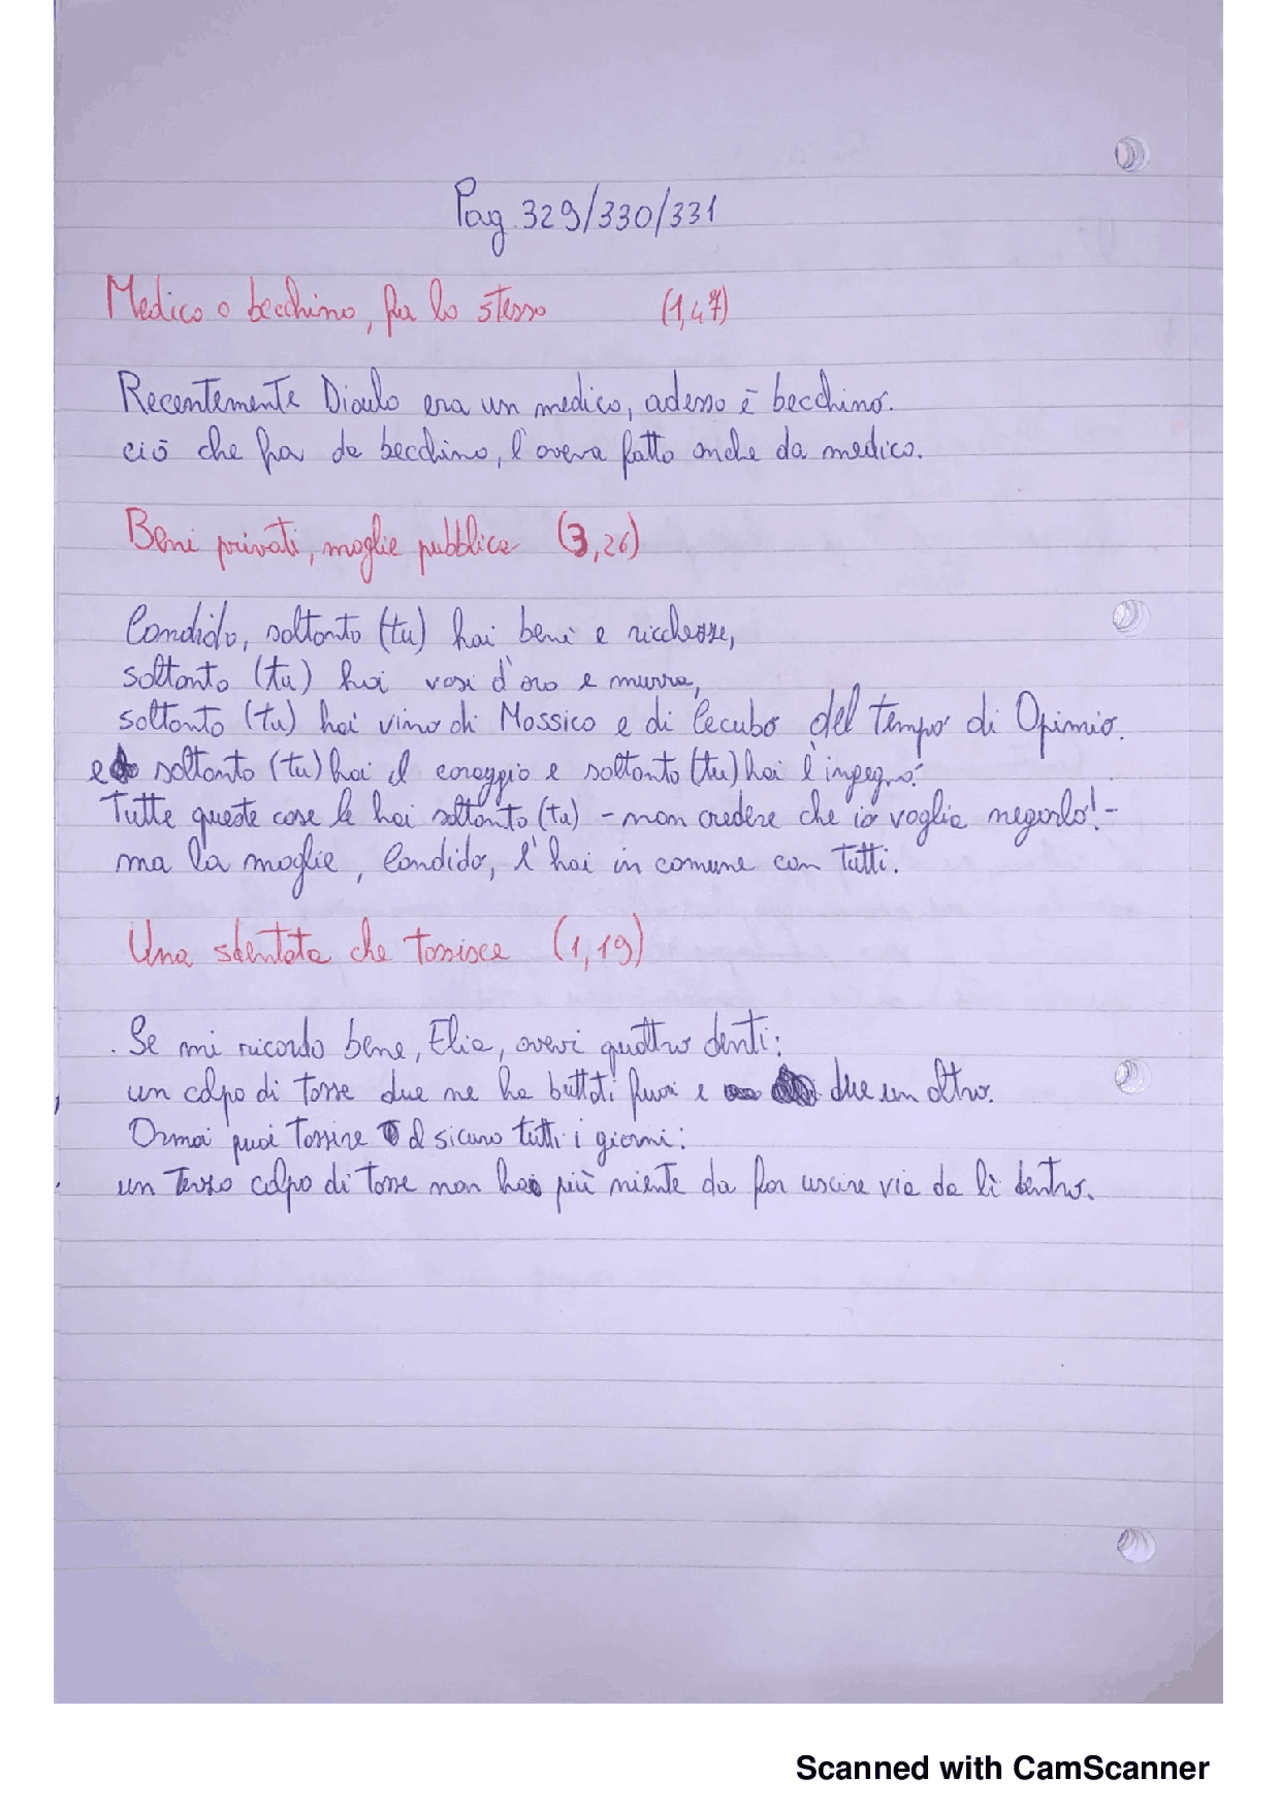 Pag. 329/330/331
Medico o becchino, fa lo stesso (1,47)
Recentemente Diaulo era un medico, adesso è becchino.
ciò che fa da becchino, l'aveva fatto anche da medico.
Beni privati, moglie pubblica (3,26)
Candido, soltanto (tu) hai beni e ricchezze,
soltanto (tu) hai vasi d'oro e murra,
soltanto (tu) hai vino di Massico e di Cecubo del tempo di Opimio.
e soltanto (tu) hai il coraggio e soltanto (tu) hai l'ingegno.
Tutte queste cose le hai soltanto (tu) - non credere che io voglia negarlo! -
ma la moglie, Candido, l'hai in comune con tutti.
Una sdentata che tossisce (1,19)
. Se mi ricordo bene, Elia, avevi quattro denti:
un colpo di tosse due ne ha buttati fuori e due un altro.
Ormai puoi tossire al sicuro tutti i giorni:
un terzo colpo di tosse non ha più niente da far uscire via da lì dentro.
Scanned with CamScanner